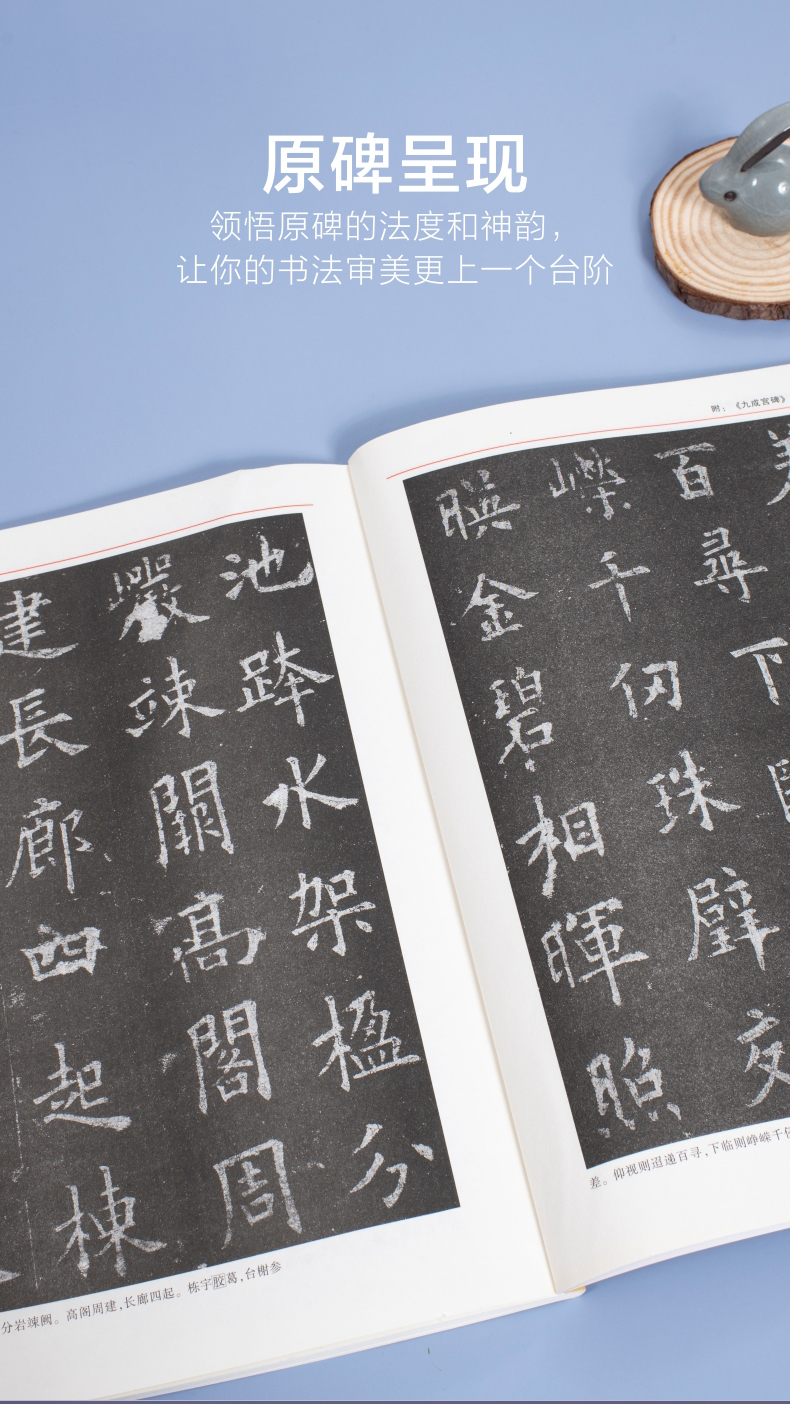 原碑呈现
领悟原碑的法度和神韵，
让你的书法审美更上一个台阶
池跨水架楹分
巖竦闕高閣周
建長廊四起棟
分岩竦阙。高阁周建，长廊四起。栋宇胶葛，台榭参
附：《九成宫碑》
百尋下
嶸千仞珠璧交
暎金碧相暉照
差。仰视则迢递百寻，下临则峥嵘千